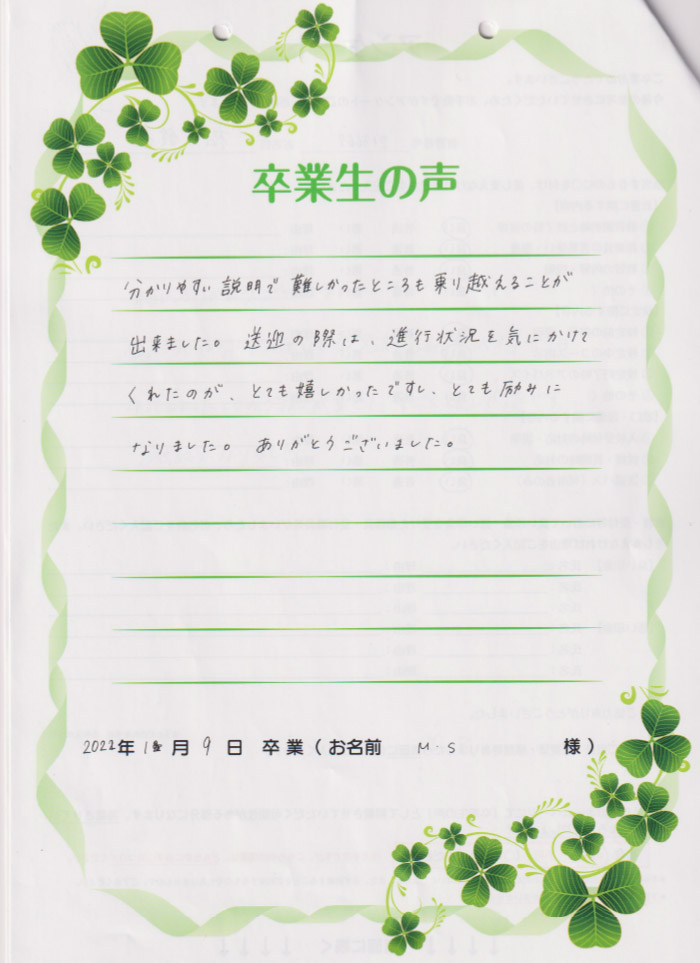 卒業生の声
分かりやすい説明で難しかったところも乗り越えることが
出来ました。送迎の際は、進行状況を気にかけて
くれたのが、とても嬉しかったですし、とても励みに
なりました。ありがとうございました。
2022年 1 月 9 日 卒業(お名前 M・S 様)